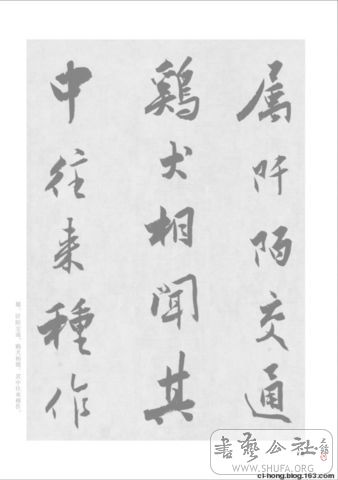 属阡陌交通
鷄犬相聞其
中往来種作
属。阡陌交通，鷄犬相聞。其中往来種作，
書藝公社
WWW.SHUFA.ORG
cl-hong.blog.163.com